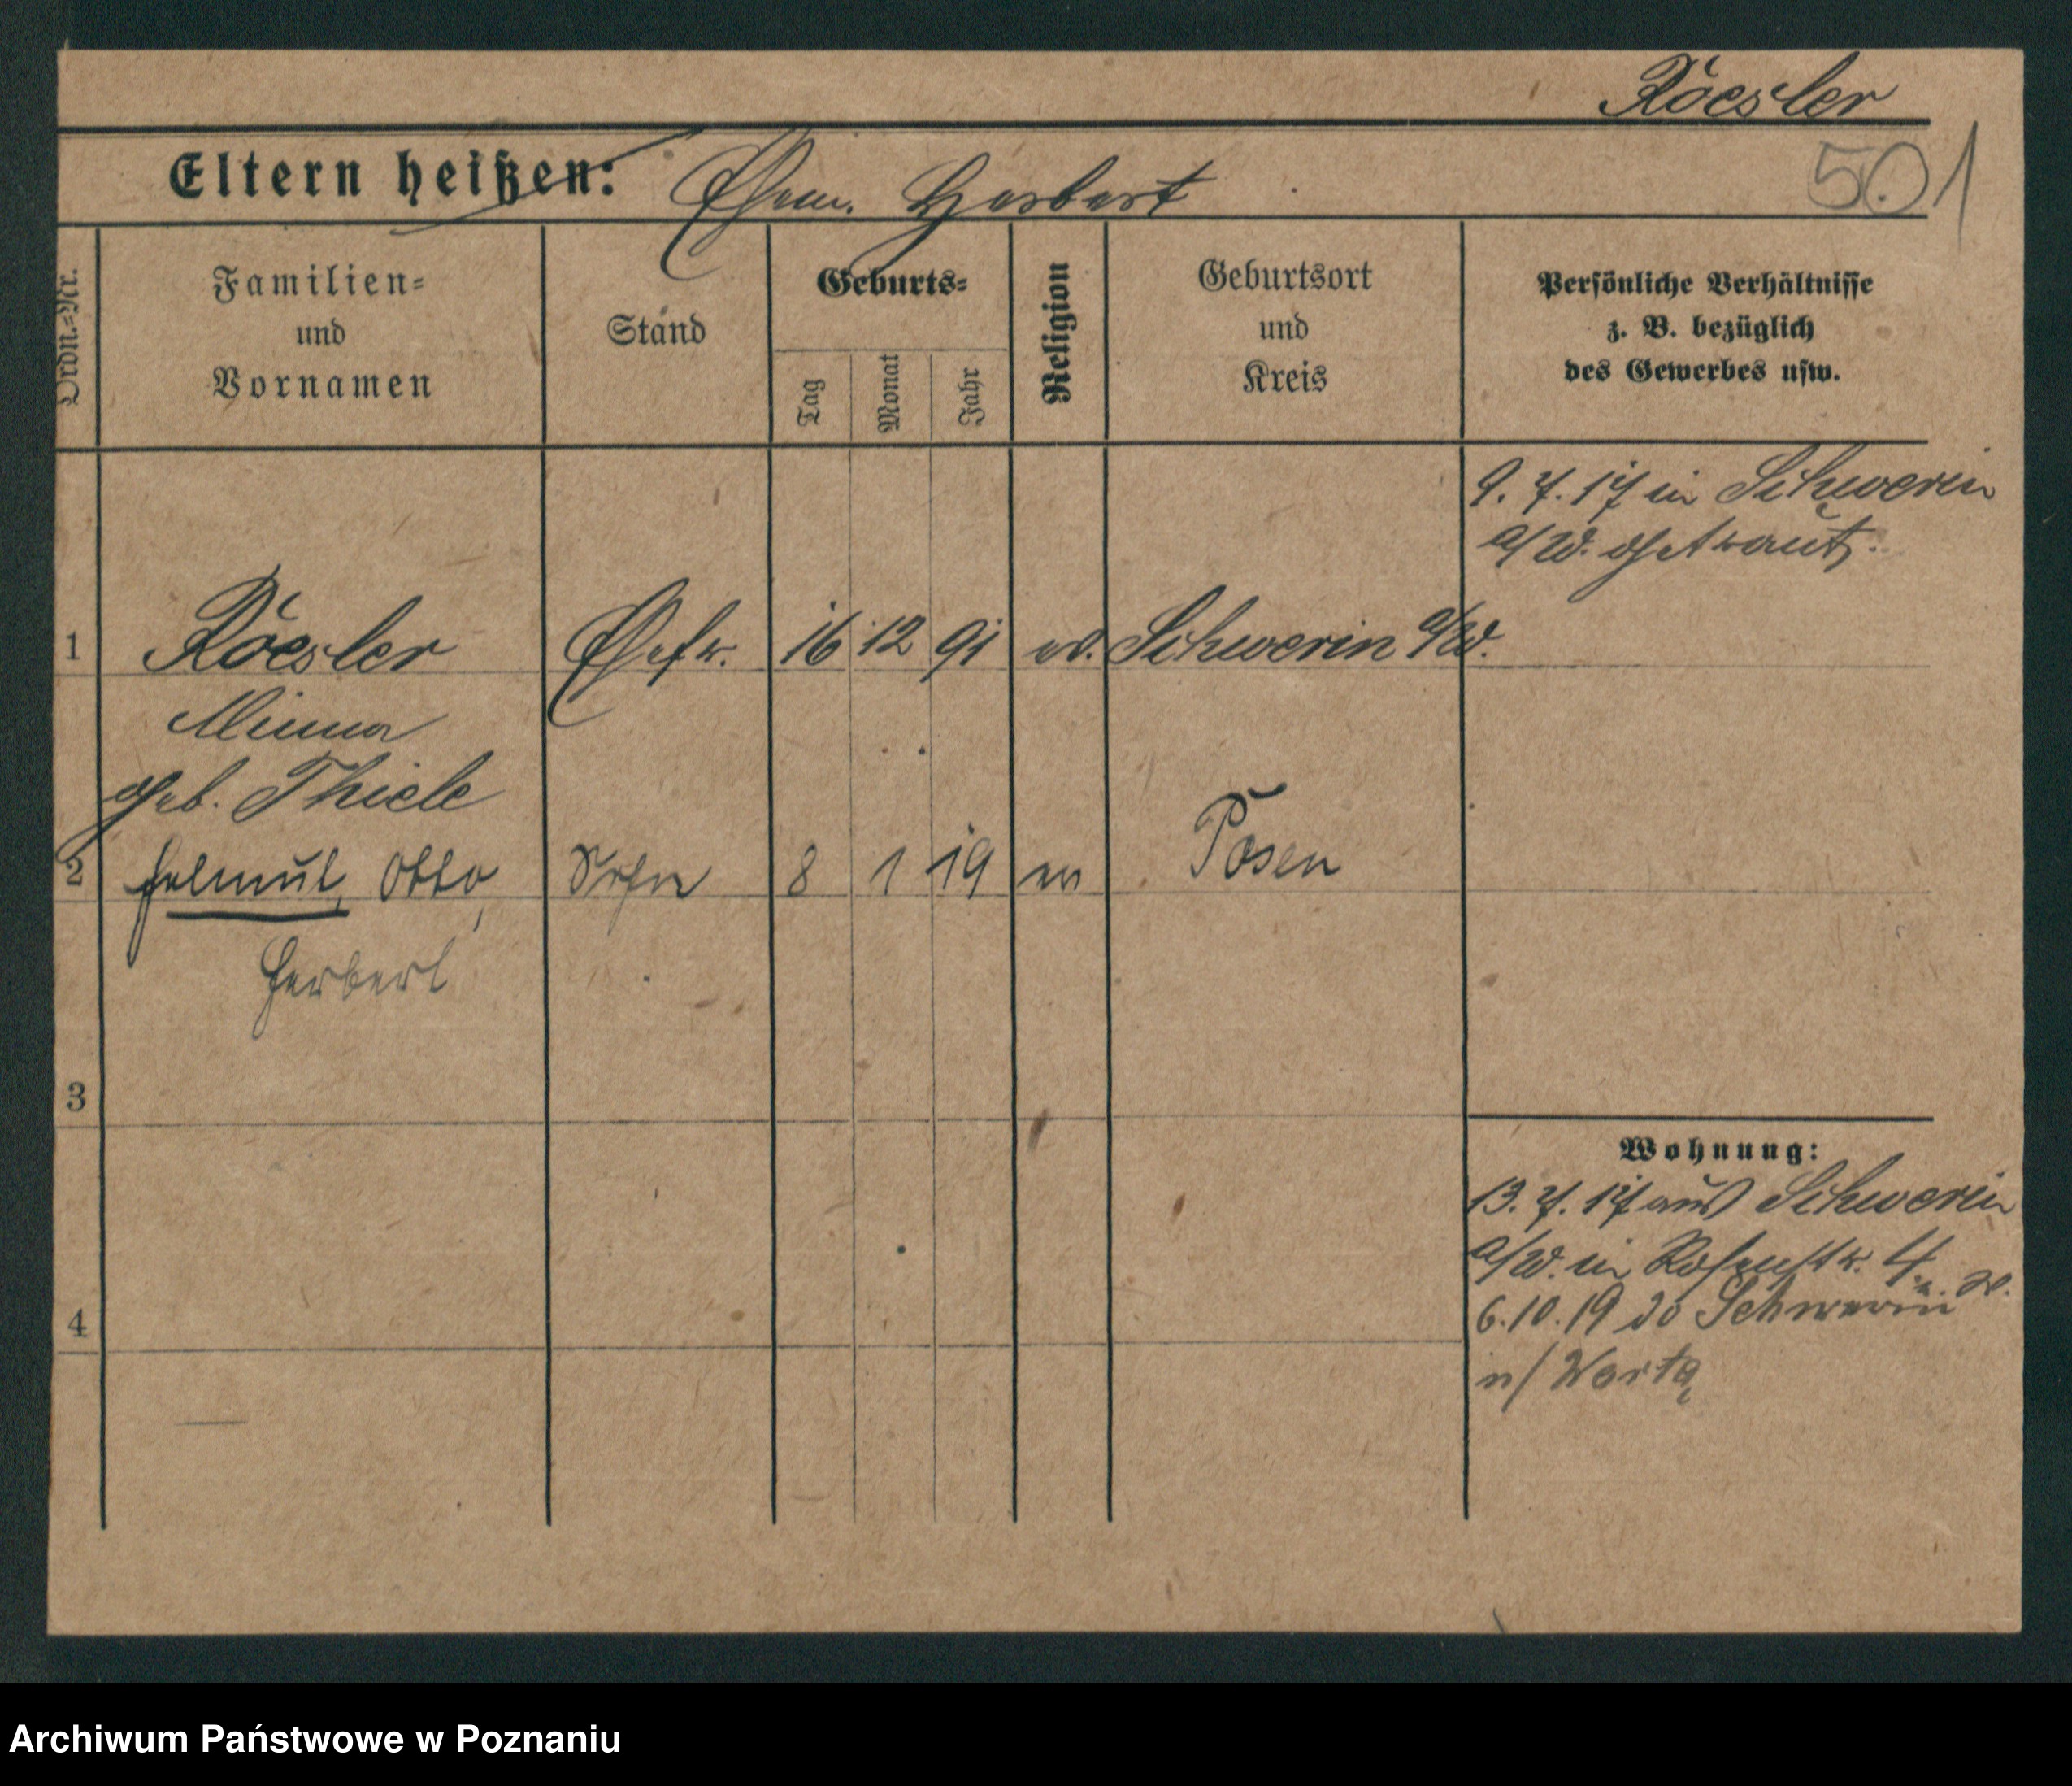 Röesler
Eltern heißen: Ehem. Herbert
501
Ordn.-Nr.
Familien-
und
Vornamen
Stand
Geburts-
Tag
Monat
Jahr
Religion
Geburtsort
und
Kreis
Persönliche Verhältnisse
z. B. bezüglich
des Gewerbes usw.
9. 7. 17 in Schwerin
a/W. getraut.
1 Röesler Ehefr. 16 12 91 ev. Schwerin a/W.
Minna
geb. Thiele
2 Helmut, Otto, Sohn 8 1 19 ev Posen
Herbert
3
Wohnung:
13. 7. 17 aus Schwerin
a/W. in Rosenstr. 4.
6.10.19 Schwerin
4
Warta
Archiwum Państwowe w Poznaniu